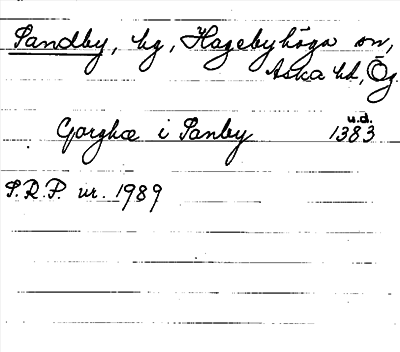 Sandby, by, Hagebyhöga sn,
Aska hd, Ög.
u.d.
Gorghæ i Sanby 1383
S.R.P. nr. 1989